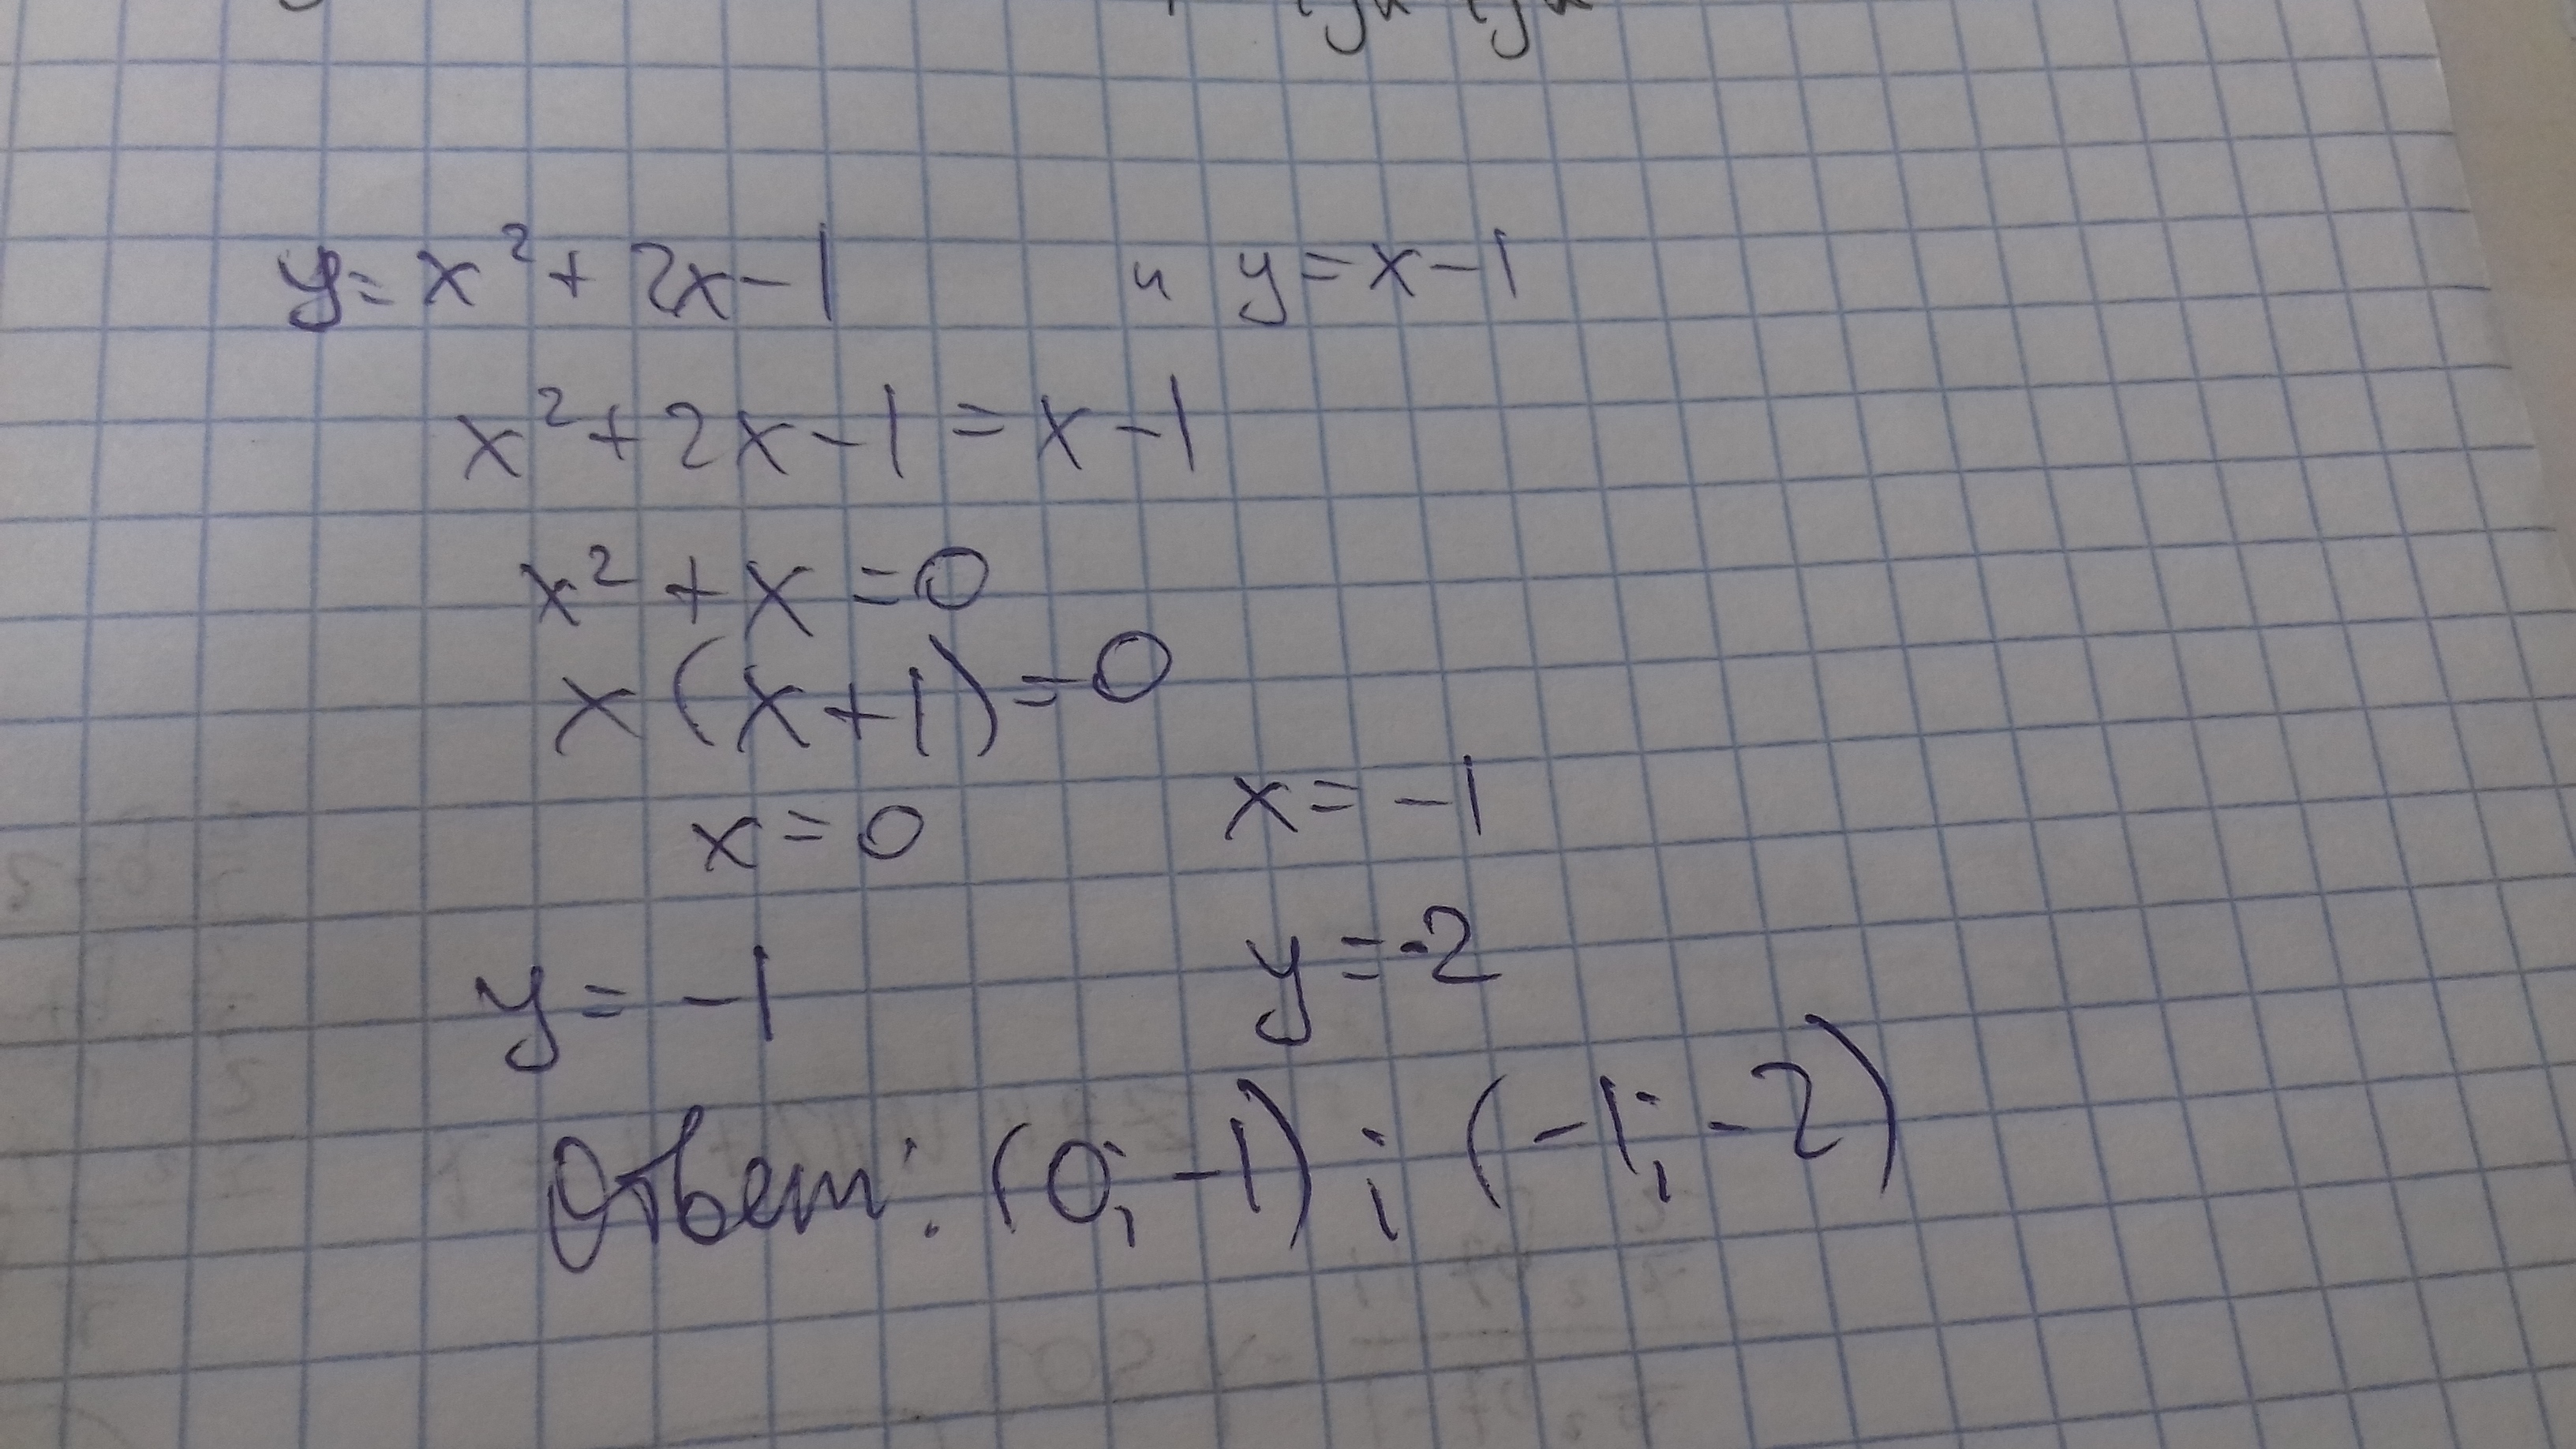 y = x² + 2x - 1 и y = x - 1
x² + 2x - 1 = x - 1
x² + x = 0
x (x + 1) = 0
x = 0 x = -1
y = -1 y = -2
Ответ: (0; -1) ; (-1; -2)